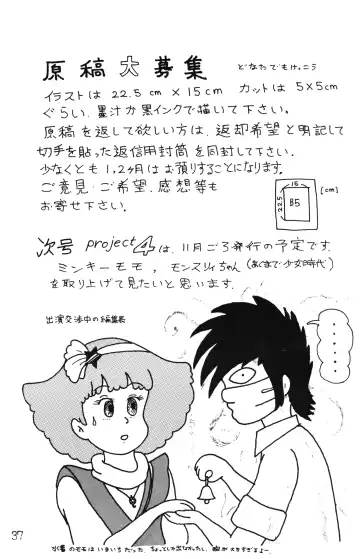 原稿大募集
どなたでもけっこう
イラストは 22.5cm × 15cm カットは 5×5cm
ぐらい、墨汁か黒インクで描いて下さい。
原稿を返して欲しい方は、返却希望と明記して
切手を貼った返信用封筒を同封して下さい。
少なくとも1,2ヶ月はお預りすることになります。
ご意見・ご希望、感想等も
お寄せ下さい。
15
22.5
B5
[cm]
次号 project 4 は、11月ごろ発行の予定です。
ミンキーモモ, モンスリィちゃん (あくまで少女時代)
を取り上げて見たいと思います。
出演交渉中の編集長
37